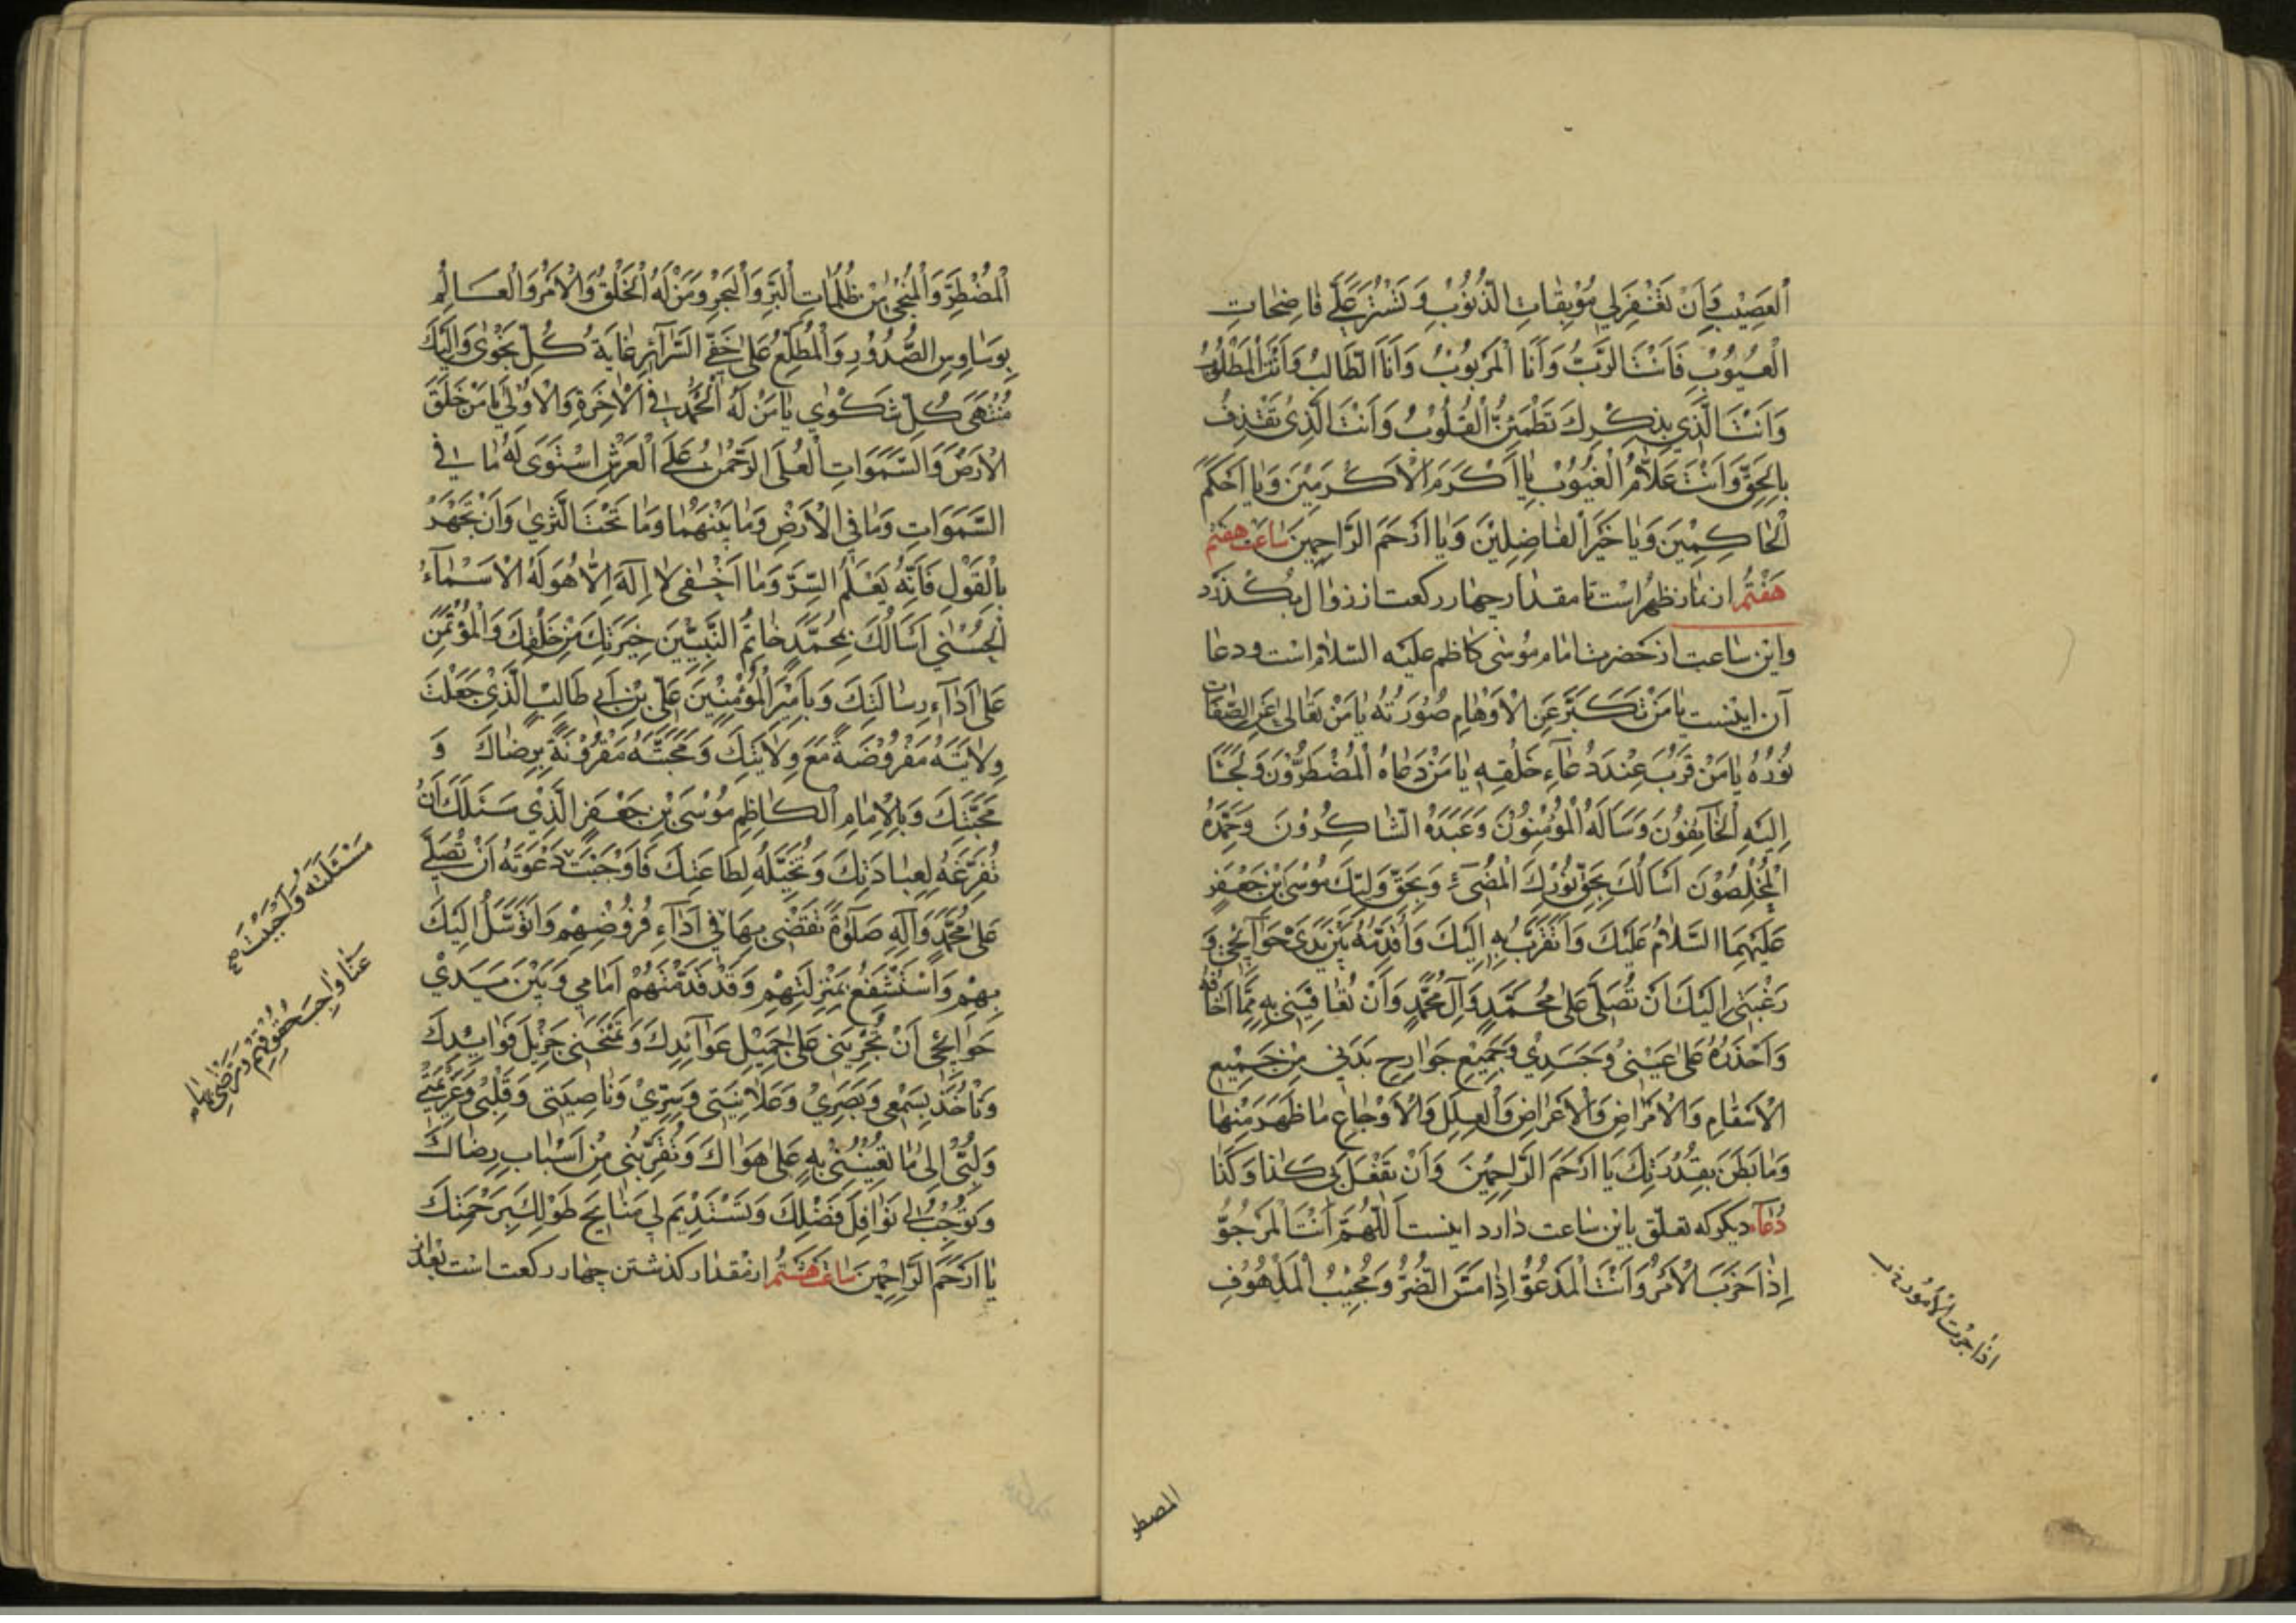 الْعَصِيْبِ وَاَنْ تَغْفِرَ لِي مُوْبِقَاتِ الذُّنُوْبِ وَ تَسْتُرَ عَلَيَّ فَاضِحَاتِ
الْعُيُوْبِ فَاَنْتَ الرَّبُّ وَاَنَا الْمَرْبُوْبُ وَاَنَا الطَّالِبُ وَاَنْتَ الْمَطْلُوْبُ
وَاَنْتَ الَّذِي بِذِكْرِكَ تَطْمَئِنُّ الْقُلُوْبُ وَاَنْتَ الَّذِي تَقْذِفُ
بِالْحَقِّ وَاَنْتَ عَلَّامُ الْغُيُوْبِ يَا اَكْرَمَ الْاَكْرَمِيْنَ وَيَا اَحْكَمَ
الْحَاكِمِيْنَ وَيَا خَيْرَ الْفَاضِلِيْنَ وَيَا اَرْحَمَ الرَّاحِمِيْنَ ساعت هفتم
هَفْتُم از نماز ظهر است تا مقدار چهار ركعت از زوال بكذرد
واين ساعت از حضرت امام موُسٰى كاظم عليه السّلام است ودعا
آن اينست يَا مَنْ تَكَبَّرَ عَنِ الْاَوْهَامِ صُوْرَتُهُ يَا مَنْ تَعَالٰى عَنِ الصِّفَاتِ
نُوْرُهُ يَا مَنْ قَرُبَ عِنْدَ دُعَاءِ خَلْقِهِ يَا مَنْ دَعَاهُ الْمُضْطَرُّوْنَ وَلَجَأَ
اِلَيْهِ الْخَائِفُوْنَ وَسَاَلَهُ الْمُؤْمِنُوْنَ وَعَبَدَهُ الشَّاكِرُوْنَ وَحَمِدَهُ
الْمُخْلِصُوْنَ اَسْاَلُكَ بِحَقِّ نُوْرِكَ الْمُضِيْءِ وَبِحَقِّ وَلِيِّكَ مُوْسَى بْنِ جَعْفَرٍ
عَلَيْهِمَا السَّلَامُ عَلَيْكَ وَاَتَقَرَّبُ بِهِ اِلَيْكَ وَاُقَدِّمُهُ بَيْنَ يَدَيْ حَوَائِجِي وَ
رَغْبَتِي اِلَيْكَ اَنْ تُصَلِّيَ عَلٰى مُحَمَّدٍ وَاٰلِ مُحَمَّدٍ وَاَنْ تُعَافِيَنِي بِهِ مِمَّا اَخَافُهُ
وَاَحْذَرُهُ عَلٰى عَيْنِي وَجَسَدِي وَجَمِيْعِ جَوَارِحِ بَدَنِي مِنْ جَمِيْعِ
الْاَسْقَامِ وَالْاَمْرَاضِ وَالْاَعْرَاضِ وَالْعِلَلِ وَالْاَوْجَاعِ مَا ظَهَرَ مِنْهَا
وَمَا بَطَنَ بِقُدْرَتِكَ يَا اَرْحَمَ الرَّاحِمِيْنَ وَاَنْ تَفْعَلَ بِي كَذَا وَكَذَا
دُعَاء ديكر كه تعلّق باين ساعت دارد اينست اَللّٰهُمَّ اَنْتَ الْمَرْجُوُّ
اِذَا حَزَبَ الْاَمْرُ وَاَنْتَ الْمَدْعُوُّ اِذَا مَسَّ الضُّرُّ وَمُجِيْبُ الْمَلْهُوْفِ
المضطر
الْمُضْطَرِّ وَالْمُنْجِي مِنْ ظُلُمَاتِ الْبَرِّ وَالْبَحْرِ وَمَنْ لَهُ الْخَلْقُ وَالْاَمْرُ وَالْعَالِمُ
بِوَسَاوِسِ الصُّدُوْرِ وَالْمُطَّلِعُ عَلٰى خَفِيِّ السَّرَآئِرِ غَايَةُ كُلِّ نَجْوٰى وَاِلَيْكَ
مُنْتَهٰى كُلِّ شَكْوٰي يَا مَنْ لَهُ الْحَمْدُ فِي الْاٰخِرَةِ وَالْاُوْلٰي يَا مَنْ خَلَقَ
الْاَرْضَ وَالسَّمَوَاتِ الْعُلٰى الرَّحْمٰنُ عَلَى الْعَرْشِ اسْتَوٰى لَهُ مَا فِي
السَّمَوَاتِ وَمَا فِي الْاَرْضِ وَمَا بَيْنَهُمَا وَمَا تَحْتَ الثَّرٰي وَاِنْ تَجْهَرْ
بِالْقَوْلِ فَاِنَّهُ يَعْلَمُ السِّرَّ وَمَا اَخْفٰى لَا اِلٰهَ اِلَّا هُوَ لَهُ الْاَسْمَآءُ
الْحُسْنٰي اَسْاَلُكَ بِمُحَمَّدٍ خَاتَمِ النَّبِيِّيْنَ خِيَرَتِكَ مِنْ خَلْقِكَ وَالْمُؤْتَمَنِ
عَلٰى اَدَآءِ رِسَالَتِكَ وَبِاَمِيْرِ الْمُؤْمِنِيْنَ عَلِيِّ بْنِ اَبِي طَالِبٍ الَّذِيْ جَعَلْتَ
وِلَايَتَهُ مَفْرُوْضَةً مَعَ وِلَايَتِكَ وَمَحَبَّتَهُ مَقْرُوْنَةً بِرِضَاكَ وَ
مَحَبَّتِكَ وَبِالْاِمَامِ الْكَاظِمِ مُوْسَى بْنِ جَعْفَرٍ الَّذِيْ سَئَلَكَ اَنْ
تُفَرِّغَهُ لِعِبَادَتِكَ وَتُخَلِّيَهُ لِطَاعَتِكَ فَاَوْجَبْتَ دَعْوَتَهُ اَنْ تُصَلِّيَ
عَلٰى مُحَمَّدٍ وَآلِهِ صَلٰوةً تَقْضِي بِهَا فِي اَدَآءِ فُرُوْضِهِمْ وَاَتَوَسَّلُ اِلَيْكَ
بِهِمْ وَاَسْتَشْفِعُ بِمَنْزِلَتِهِمْ وَقَدْ قَدَّمْتُهُمْ اَمَامِي وَبَيْنَ يَدَيْ
حَوَائِجِي اَنْ تُجْرِيَنِي عَلٰى جَمِيْلِ عَوَآئِدِكَ وَتَمْنَحَنِي جَزِيْلَ فَوَايِدِكَ
وَتَاْخُذَ بِسَمْعِي وَبَصَرِيْ وَعَلَانِيَتِي وَسِرِّيْ وَنَاصِيَتِي وَقَلْبِي وَعَزِيْمَتِي
وَلُبِّي اِلٰى مَا تُعِيْنُنِي بِهِ عَلٰى هَوَاكَ وَتُقَرِّبُنِي مِنْ اَسْبَابِ رِضَاكَ
وَتُوْجِبُ لِي نَوَافِلَ فَضْلِكَ وَتَسْتَدِيْمَ لِي مَنَايِحَ طَوْلِكَ بِرَحْمَتِكَ
يَا اَرْحَمَ الرَّاحِمِيْنَ ساعت هشتم از مقدار كذشتن چهار ركعت است بعد از
مَسْئَلَتَهُ وَاَجَبْتَ
عَنَّا وَاجِبَ حُقُوْقِهِمْ وَتَرْضٰى